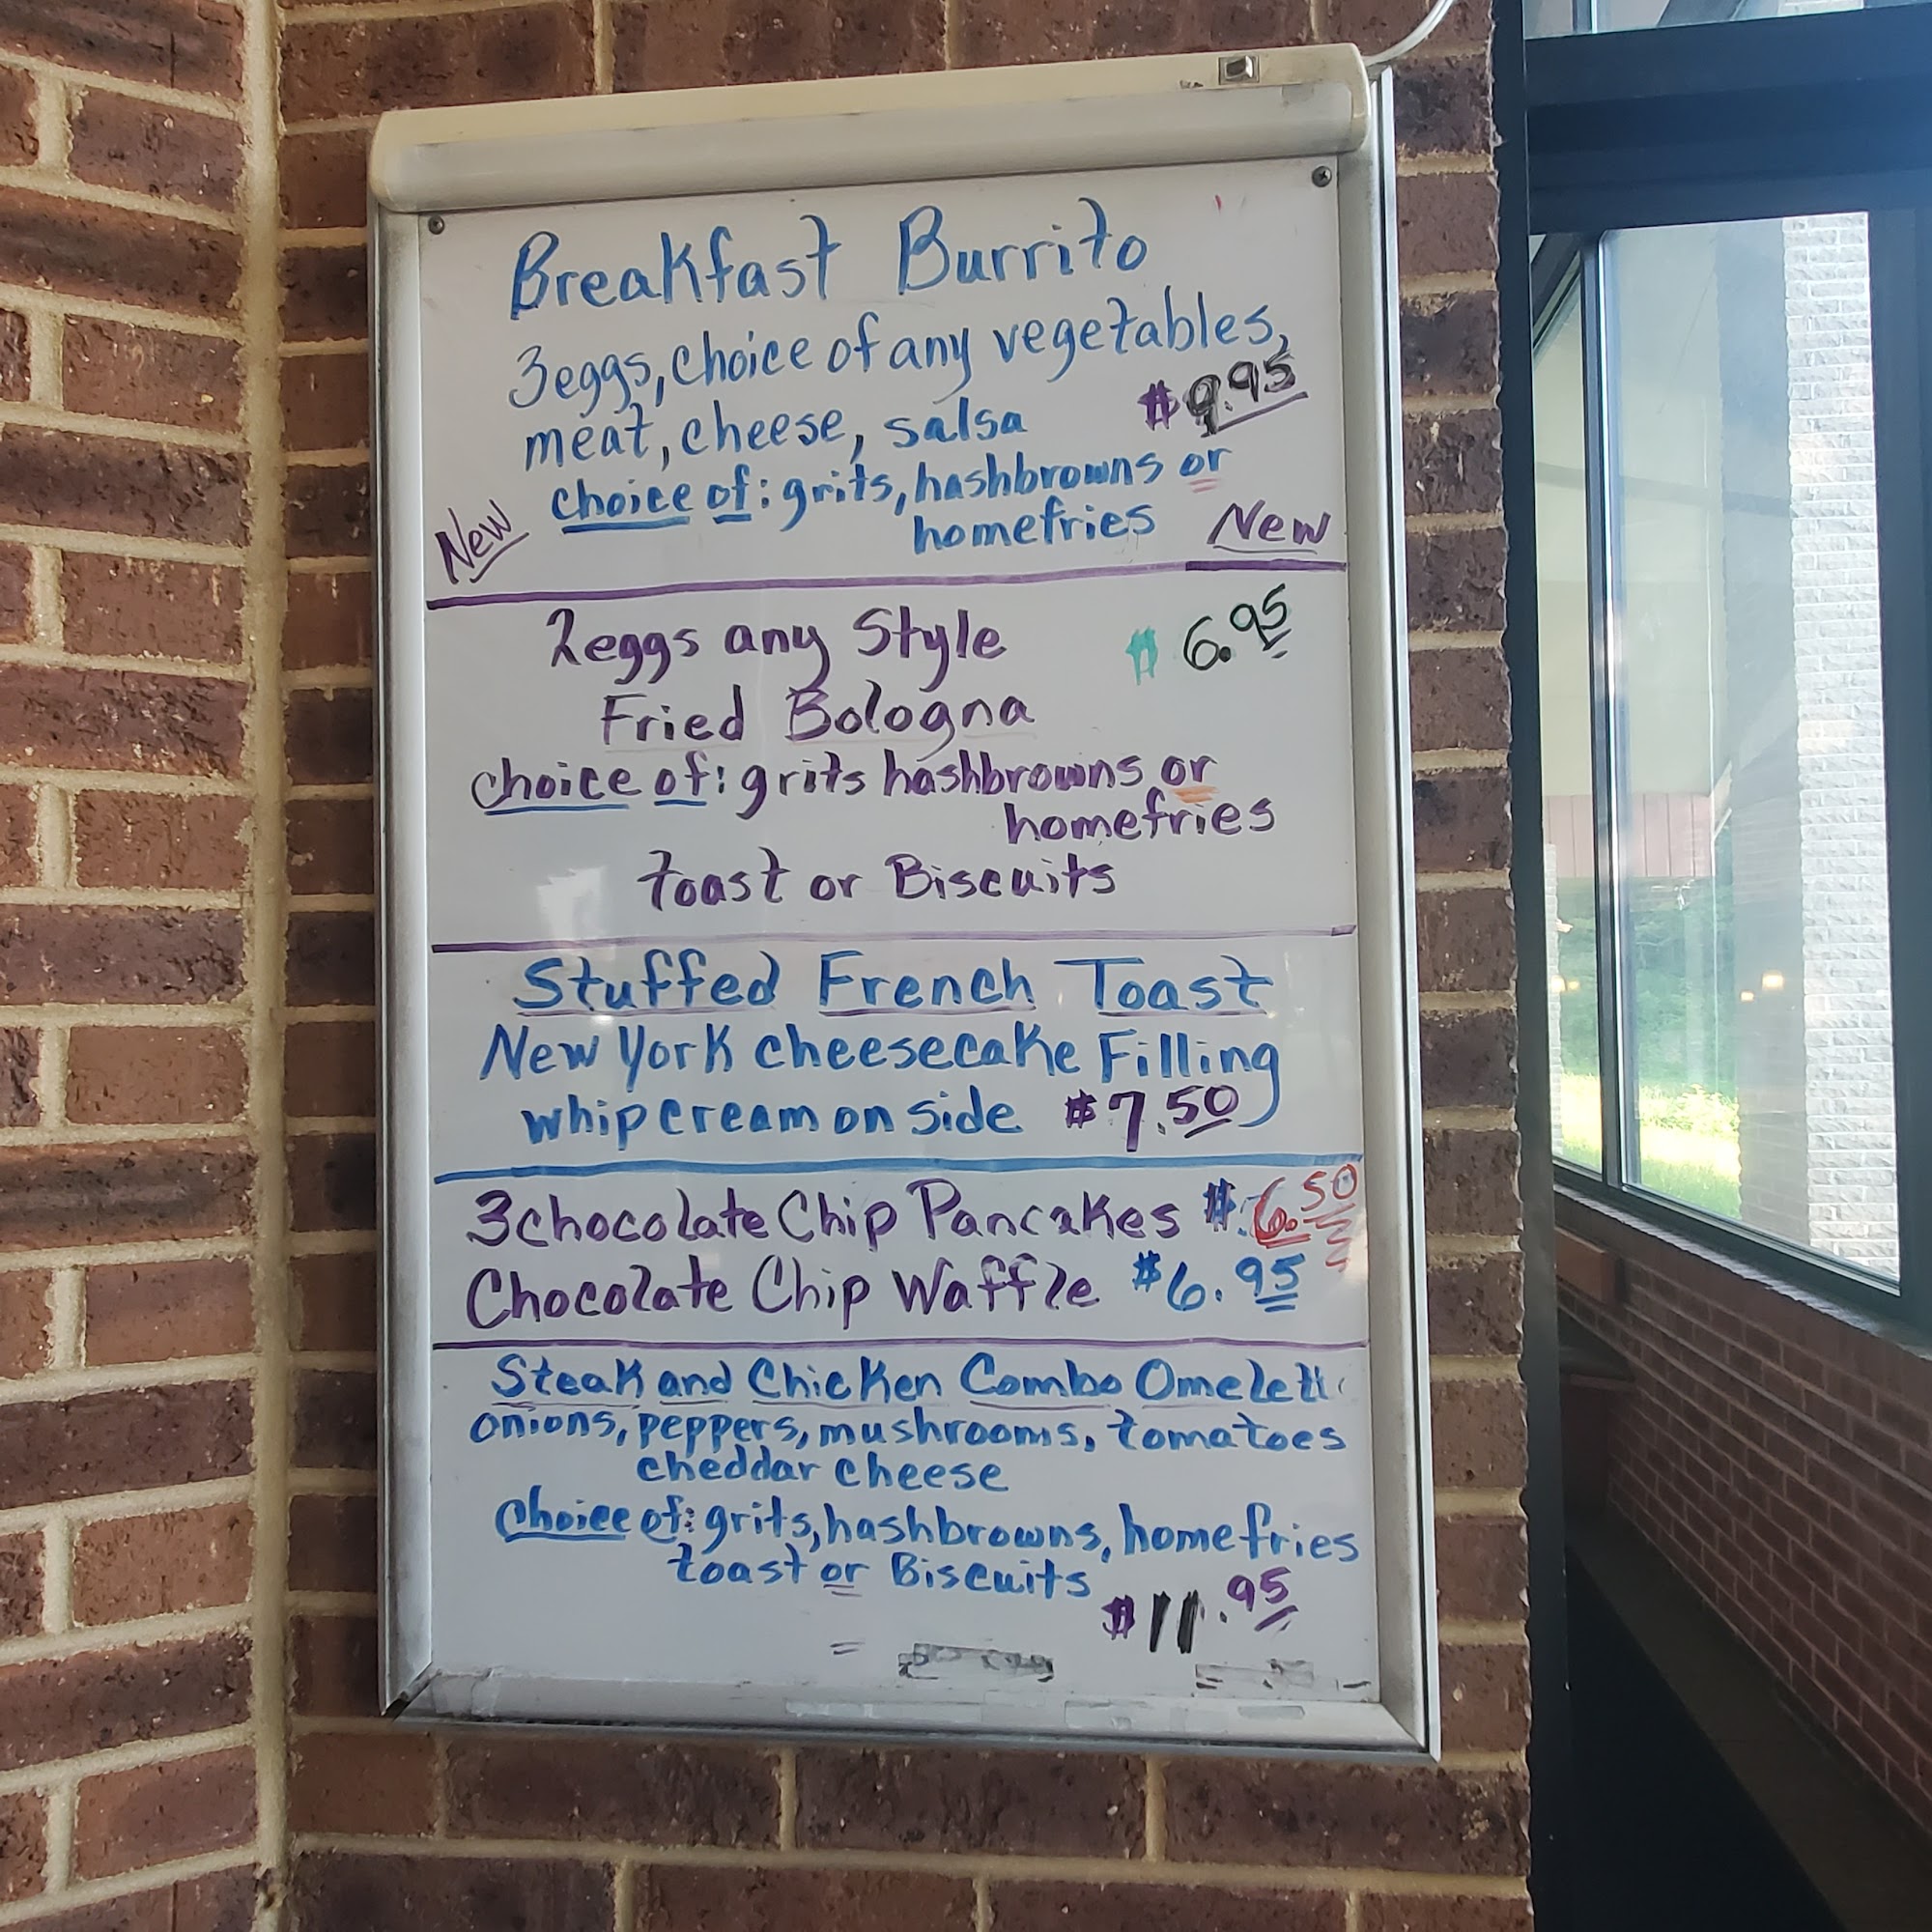 Breakfast Burrito
3eggs, choice of any vegetables,
meat, cheese, salsa $9.95
choice of: grits, hashbrowns or
homefries
New New
2eggs any Style $6.95
Fried Bologna
choice of: grits hashbrowns or
homefries
toast or Biscuits
Stuffed French Toast
New York cheesecake Filling
whip cream on side $7.50
3 chocolate Chip Pancakes $6.50
Chocolate Chip Waffle $6.95
Steak and Chicken Combo Omelett
onions, peppers, mushrooms, tomatoes
cheddar cheese
choice of: grits, hashbrowns, homefries
toast or Biscuits
$11.95